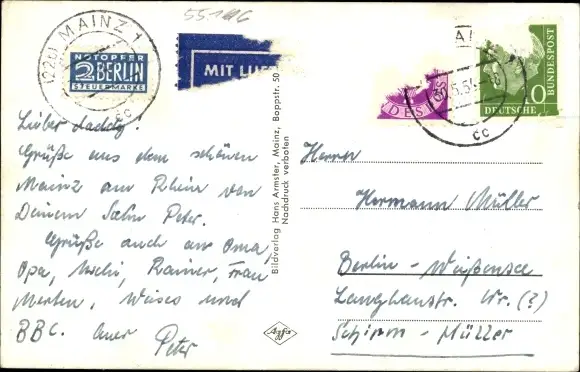 55146
(22b) MAINZ 1
cc
NOTOPFER
2 BERLIN
STEUERMARKE
MIT LU
DEUTSCHE
BUNDESPOST
10
cc
Lieber daddy!
Grüße aus dem schönen
Mainz am Rhein von
Deinem Sohn Peter.
Grüße auch an Oma,
Opa, Rainer, Frau
und
BBC. Euer
Peter
Bildverlag Hans Armster, Mainz, Boppstr. 50
Nachdruck verboten
Agfa
Herrn
Hermann Müller
Berlin - Weißensee
Langhanstr. Nr. (?)
Schirm - Müller